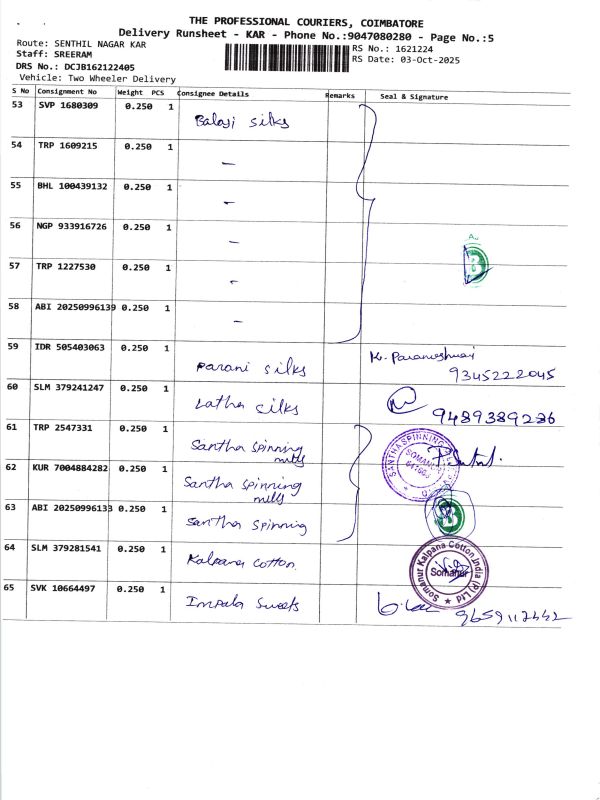 THE PROFESSIONAL COURIERS, COIMBATORE
Delivery Runsheet - KAR - Phone No.:9047080280 - Page No.:5
Route: SENTHIL NAGAR KAR
Staff: SREERAM
DRS No.: DCJB162122405
Vehicle: Two Wheeler Delivery
RS No.: 1621224
RS Date: 03-Oct-2025
S No Consignment No Weight PCS Consignee Details Remarks Seal & Signature
53 SVP 1680309 0.250 1 Balaji silks
54 TRP 1609215 0.250 1 -
55 BHL 100439132 0.250 1 -
56 NGP 933916726 0.250 1 -
57 TRP 1227530 0.250 1 -
58 ABI 20250996139 0.250 1 -
B
59 IDR 505403063 0.250 1 Parani silks K. Parameshwari
9345222045
60 SLM 379241247 0.250 1 Latha cilks 9489389286
61 TRP 2547331 0.250 1 Santha spinning
mills
SANTHA SPINNING
SOMANUR
62 KUR 7004884282 0.250 1 Santha spinning
mills
63 ABI 20250996133 0.250 1 Santha spinning
B
64 SLM 379281541 0.250 1 Kalpana cotton
Somanur Kalpana Cotton India (p) Ltd
Somanur
65 SVK 10664497 0.250 1 Impala sweets